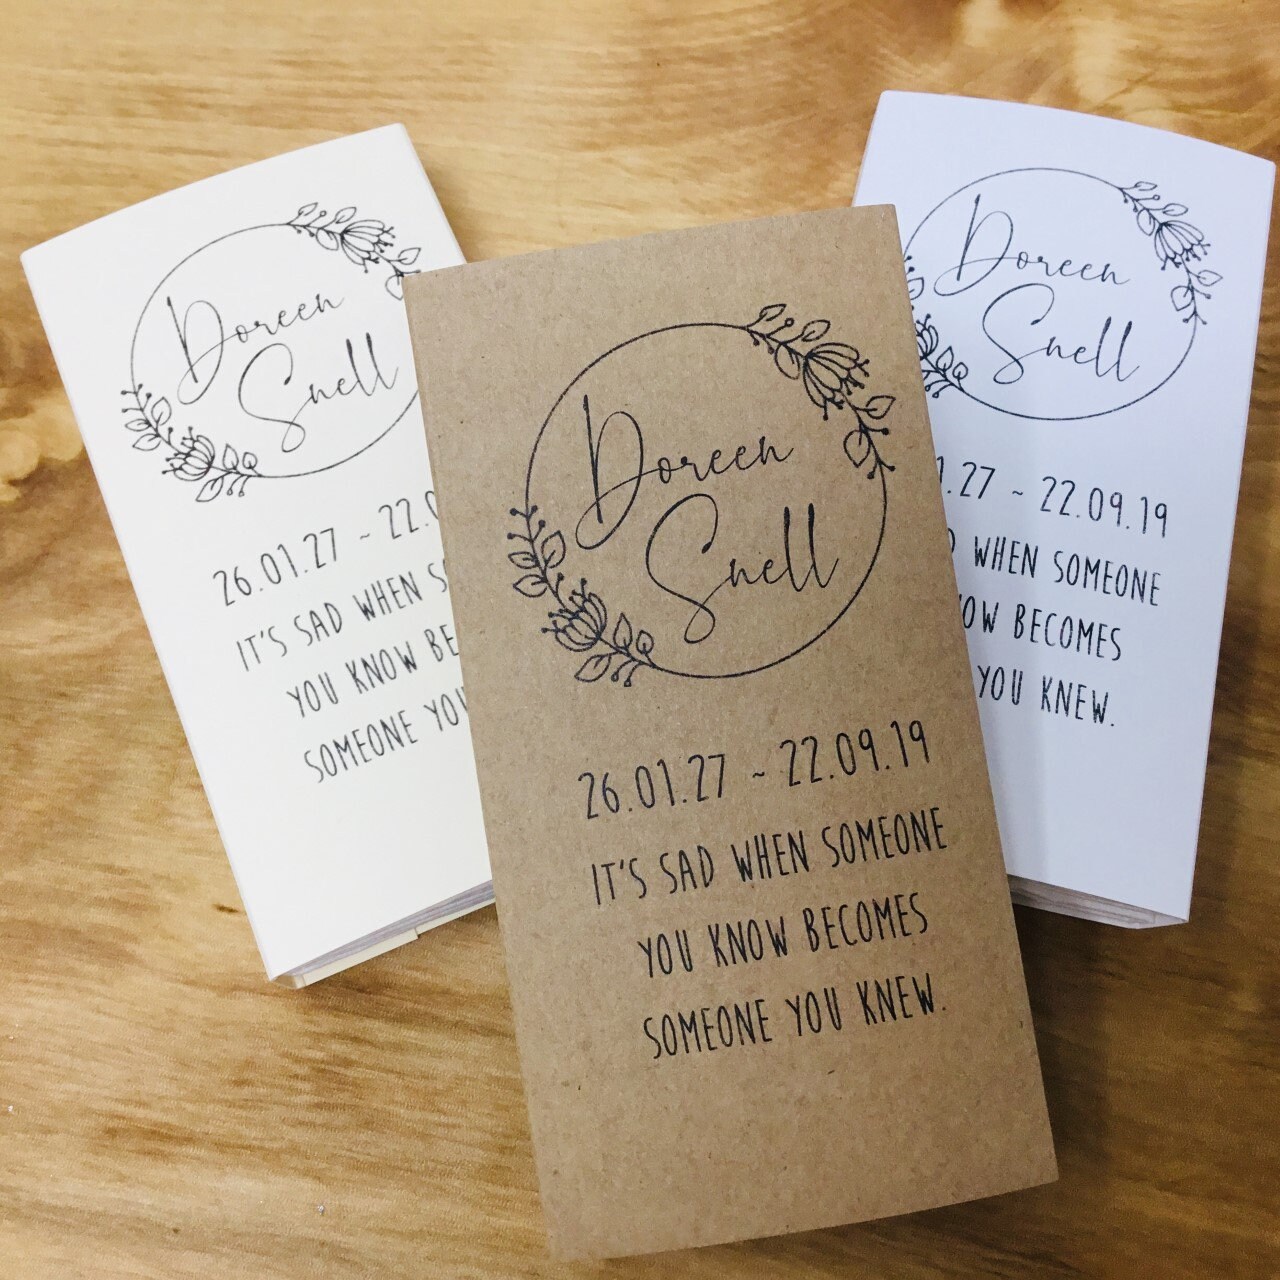 Doreen
Snell
26.01.27 ~ 22.0
IT'S SAD WHEN
YOU KNOW
SOMEONE YOU
Doreen
Snell
26.01.27 ~ 22.09.19
IT'S SAD WHEN SOMEONE
YOU KNOW BECOMES
SOMEONE YOU KNEW.
Doreen
Snell
.27 ~ 22.09.19
WHEN SOMEONE
BECOMES
YOU KNEW.